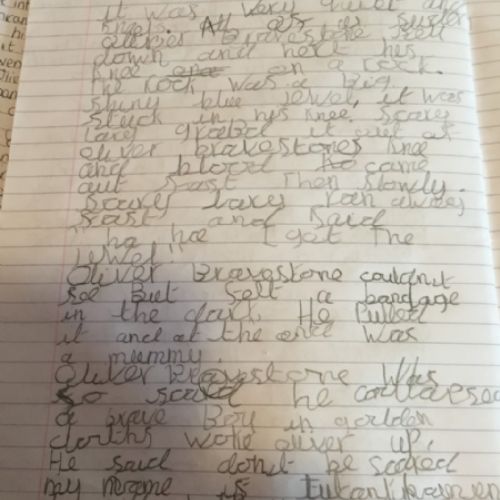 it was very quiet and
All of a sudder
Oliver Bravestone fell
down and hert his
knee on a rock.
The rock was a Big
shiny blue Jewel, it was
stuck in his knee. Scarey
Larey grabed it out of
oliver bravestones knee
and blood came
out fast then slowly.
Scarey Larey ran away
fast and said
"ha ha I got the
Jewel"
Oliver Bravestone couldn't
see But felt a bandage
in the dark. He Pulled
it and at the end was
a mummy.
Oliver Bravestone Was
so scared he collapesed
a brave Boy in golden
cloths woke oliver up.
He said dont be scared
my name is Tutankhamun